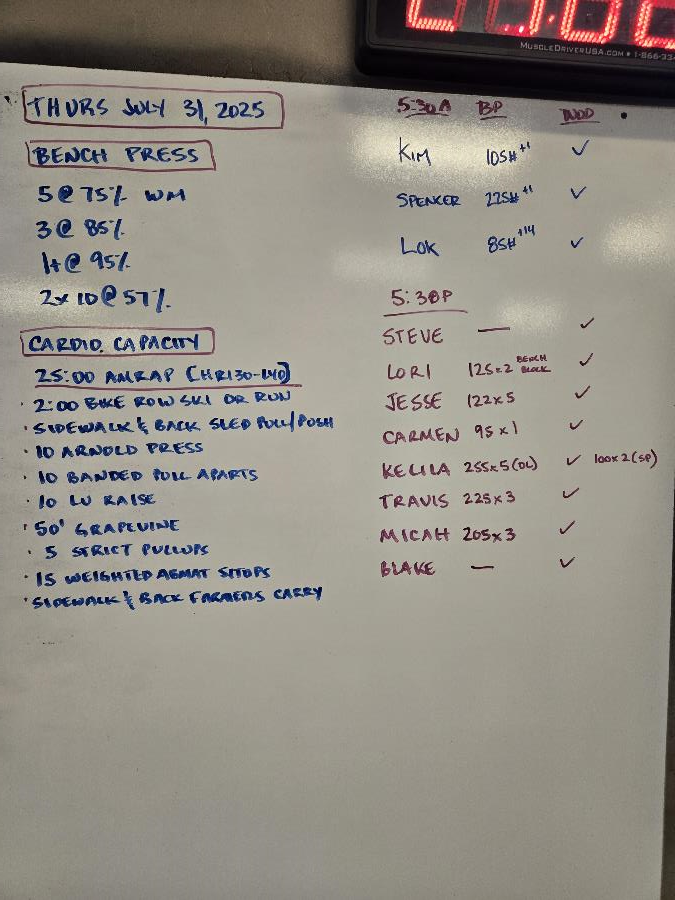 MUSCLEDRIVERUSA.COM • 1-866-33
THURS JULY 31, 2025
BENCH PRESS
5 @ 75% WM
3 @ 85%
1+ @ 95%
2x10 @ 57%
CARDIO CAPACITY
25:00 AMRAP (HR130-140)
· 2:00 BIKE ROW SKI OR RUN
· SIDEWALK & BACK SLED PULL/PUSH
· 10 ARNOLD PRESS
· 10 BANDED PULL APARTS
· 10 LU RAISE
· 50' GRAPEVINE
· 5 STRICT PULLUPS
· 15 WEIGHTED ABMAT SITUPS
· SIDEWALK & BACK FARMERS CARRY
5:30A BP WOD
KIM 105# +1 ✓
SPENCER 225# +1 ✓
LOK 85# +14 ✓
5:30P
STEVE — ✓
LORI 125x2 BENCH BLOCK ✓
JESSE 122x5 ✓
CARMEN 95x1 ✓
KELILA 255x5 (DL) ✓ 100x2 (SP)
TRAVIS 225x3 ✓
MICAH 205x3 ✓
BLAKE — ✓